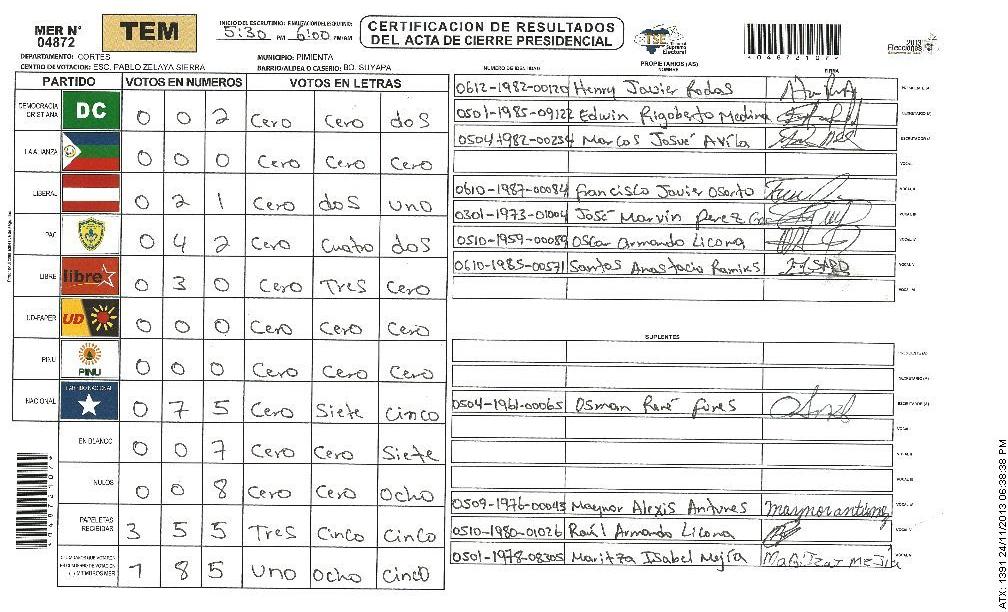 MER N° 04872
TEM
INICIO DEL ESCRUTINIO: 5:30 PM 6:00 PM/AM
CERTIFICACION DE RESULTADOS
DEL ACTA DE CIERRE PRESIDENCIAL
TSE
2013
Elecciones
DEPARTAMENTO: CORTES
MUNICIPIO: PIMIENTA
CENTRO DE VOTACION: ESC. PABLO ZELAYA SIERRA
BARRIO/ALDEA O CASERIO: BO. SUYAPA
PARTIDO VOTOS EN NUMEROS VOTOS EN LETRAS
DEMOCRACIA CRISTIANA DC 0 0 2 Cero Cero doS
LA ALIANZA 0 0 0 Cero Cero Cero
LIBERAL 0 2 1 Cero doS uno
PAC 0 4 2 Cero Cuatro doS
LIBRE libre 0 3 0 Cero Tres Cero
UD-FAPER UD 0 0 0 Cero Cero Cero
PINU PINU 0 0 0 Cero Cero Cero
NACIONAL PARTIDO NACIONAL 0 7 5 Cero Siete Cinco
EN BLANCO 0 0 7 Cero Cero Siete
NULOS 0 0 8 Cero Cero Ocho
PAPELETAS RECIBIDAS 3 5 5 Tres Cinco Cinco
1 8 5 uno ocho cinco
NUMERO DE IDENTIDAD
PROPIETARIOS (AS)
NOMBRE
FIRMA
0612-1982-00120 Henry Javier Rodas
0501-1985-09122 Edwin Rigoberto Medina
0504-1982-00234 Marcos Josué Avila
0610-1987-00084 Francisco Javier Osorto
0301-1973-01004 José Marvin Perez
0510-1959-00089 Oscar Armando Licona
0610-1985-00571 Santos Anastacio Ramires
SUPLENTES
0504-1961-00065 Osman René Funes
0509-1976-00043 Maynor Alexis Antunes
0510-1980-01026 Raúl Armando Licona
0501-1978-08305 Maritza Isabel Mejía
ATX: 1391 24/11/2013 06:38:38 PM